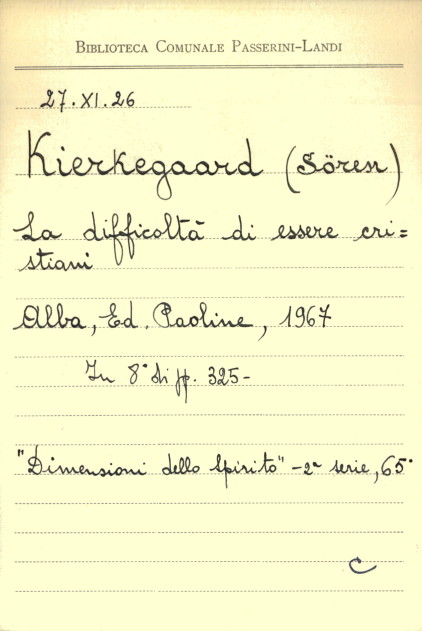 BIBLIOTECA COMUNALE PASSERINI-LANDI
27.XI.26
Kierkegaard (Sören)
La difficoltà di essere cri=
stiani
Alba, Ed. Paoline, 1967
In 8° di pp. 325-
"Dimensioni dello Spirito" - 2ª serie, 65°
C